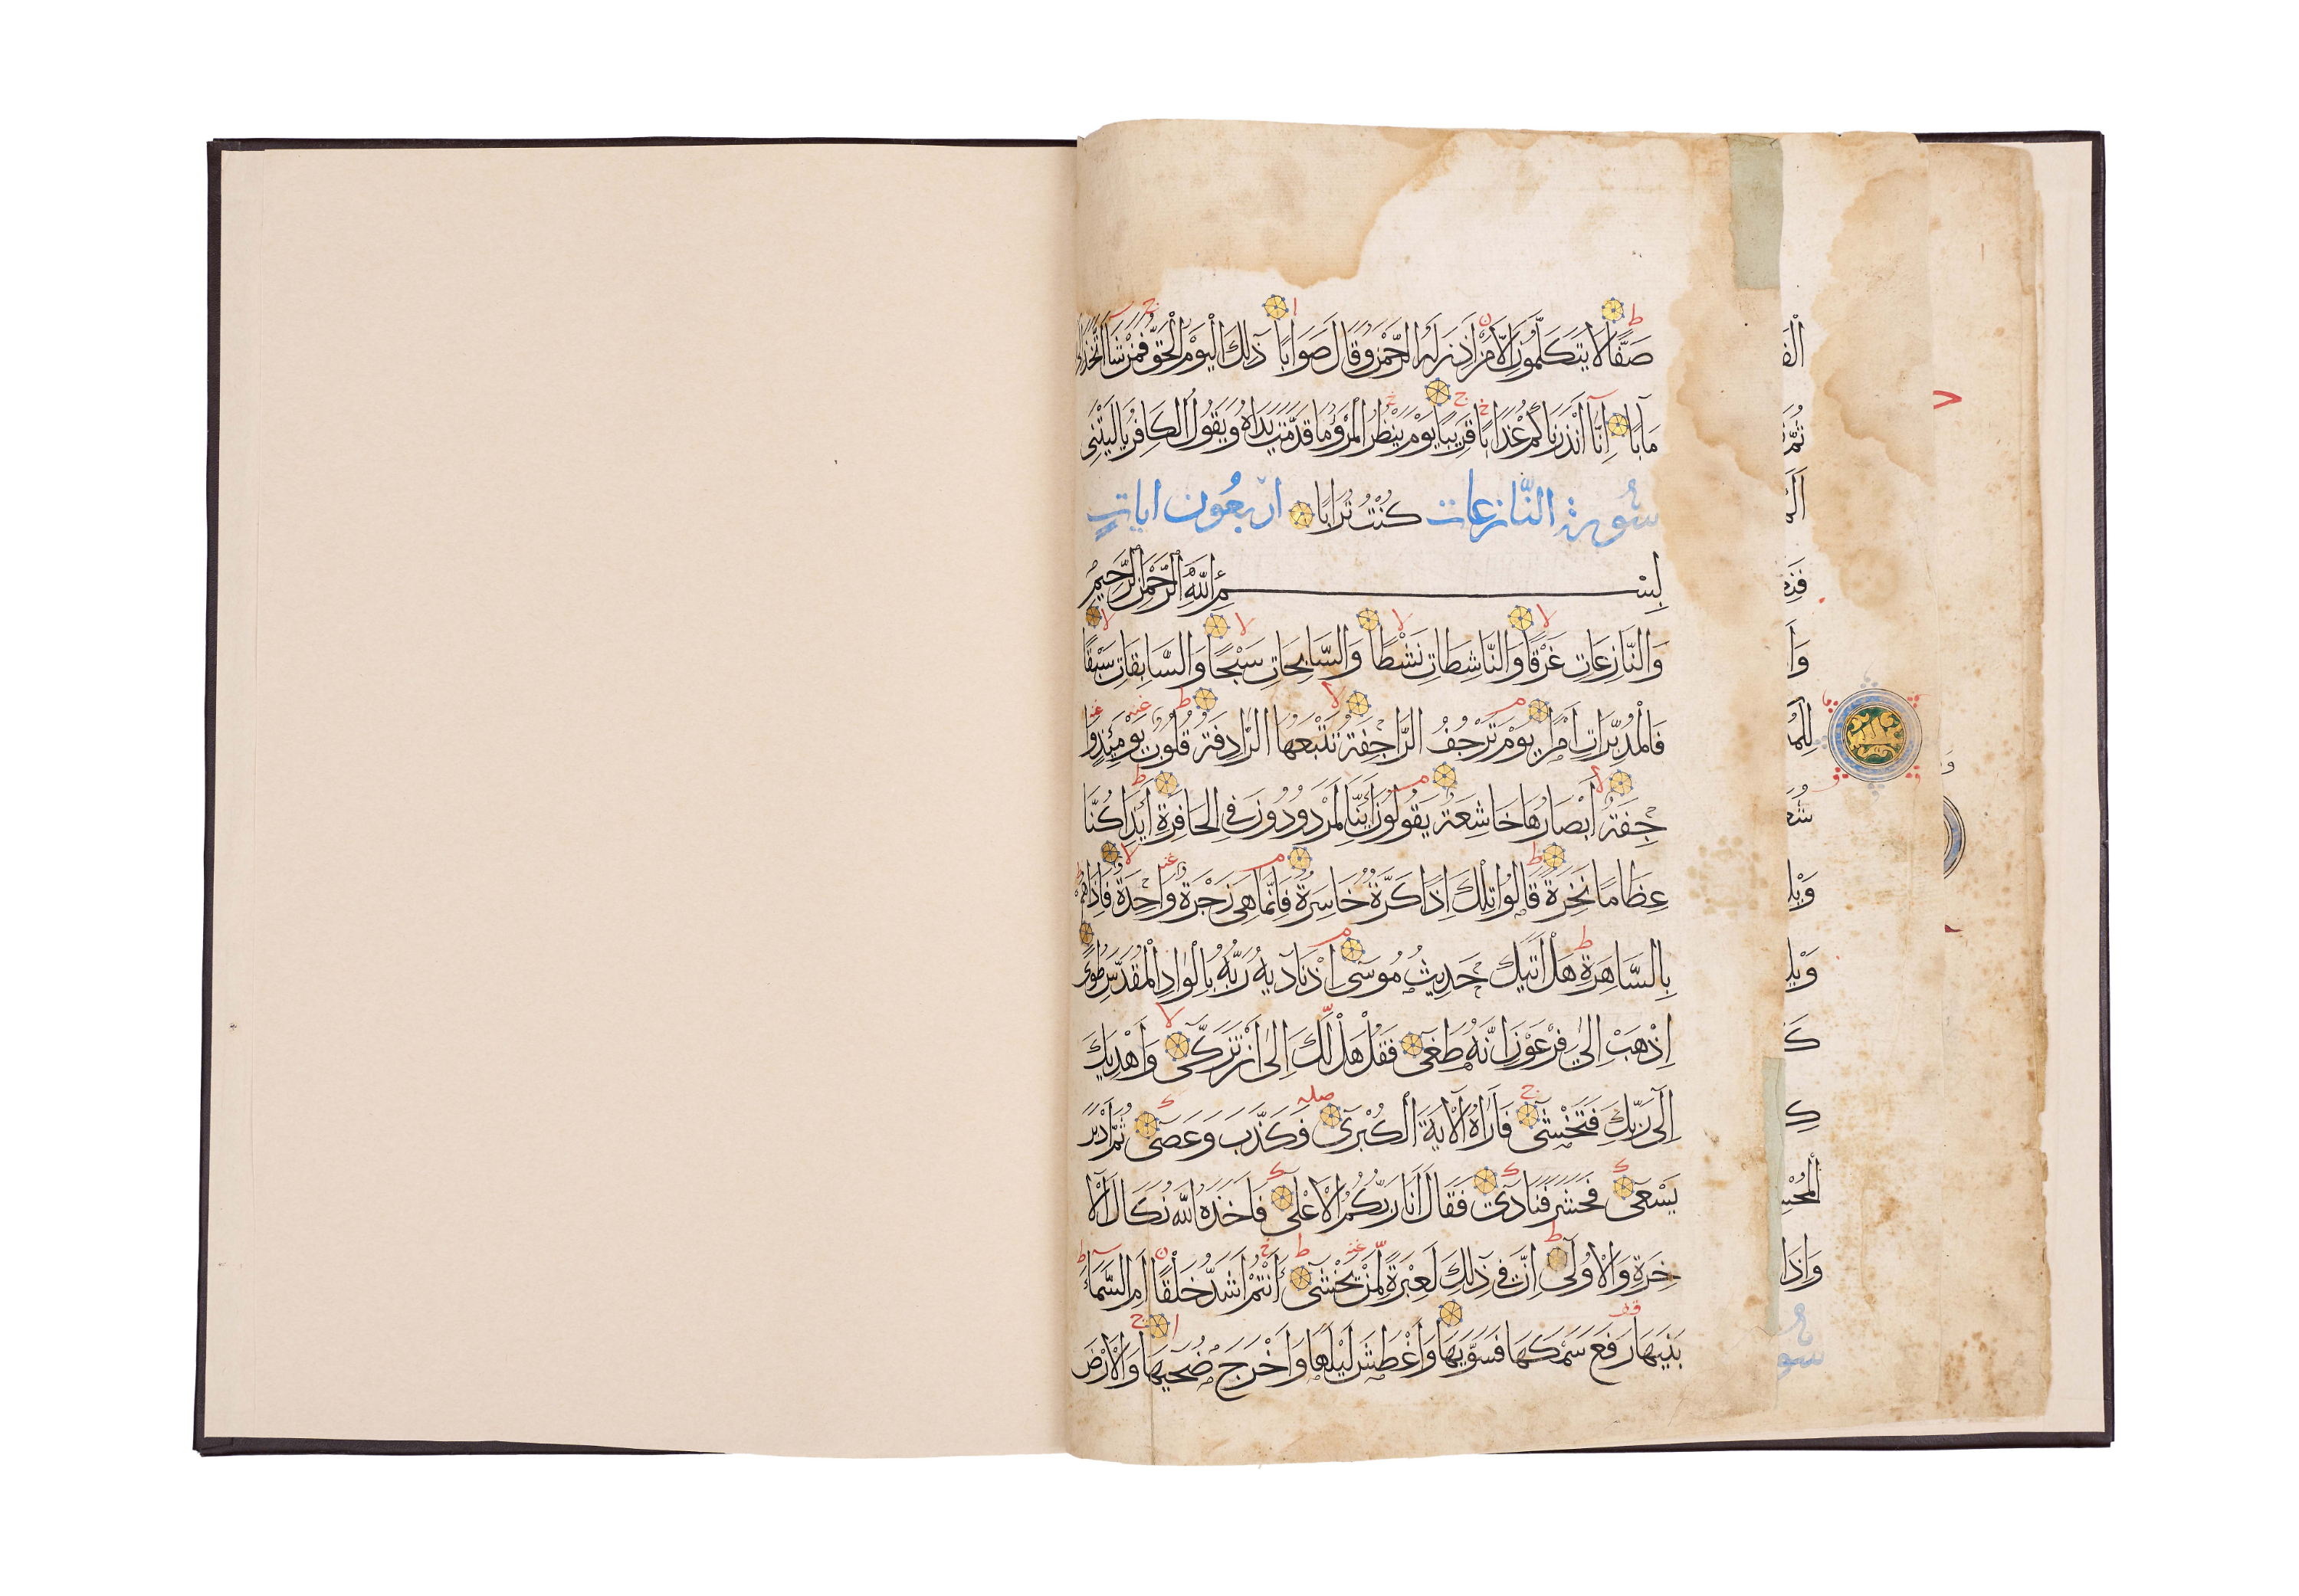 صَفًّا لَا يَتَكَلَّمُونَ اِلَّا مَنْ اَذِنَ لَهُ الرَّحْمٰنُ وَقَالَ صَوَابًا ذٰلِكَ الْيَوْمُ الْحَقُّ فَمَنْ شَآءَ اتَّخَذَ اِلٰى
مَاٰبًا اِنَّآ اَنْذَرْنَاكُمْ عَذَابًا قَرِيبًا يَوْمَ يَنْظُرُ الْمَرْءُ مَا قَدَّمَتْ يَدَاهُ وَيَقُولُ الْكَافِرُ يَا لَيْتَنِى
سُورَةُ النَّازِعَات كُنْتُ تُرَابًا اَرْبَعُونَ ايَاتٍ
بِسْمِ اللّٰهِ الرَّحْمٰنِ الرَّحِيمِ
وَالنَّازِعَاتِ غَرْقًا وَالنَّاشِطَاتِ نَشْطًا وَالسَّابِحَاتِ سَبْحًا وَالسَّابِقَاتِ سَبْقًا
فَالْمُدَبِّرَاتِ اَمْرًا يَوْمَ تَرْجُفُ الرَّاجِفَةُ تَتْبَعُهَا الرَّادِفَةُ قُلُوبٌ يَوْمَئِذٍ وَا
جِفَةٌ اَبْصَارُهَا خَاشِعَةٌ يَقُولُونَ اَئِنَّا لَمَرْدُودُونَ فِى الْحَافِرَةِ اَئِذَا كُنَّا
عِظَامًا نَخِرَةً قَالُوا تِلْكَ اِذًا كَرَّةٌ خَاسِرَةٌ فَاِنَّمَا هِىَ زَجْرَةٌ وَاحِدَةٌ فَاِذَا هُمْ
بِالسَّاهِرَةِ هَلْ اَتٰيكَ حَدِيثُ مُوسٰى اِذْ نَادٰيهُ رَبُّهُ بِالْوَادِ الْمُقَدَّسِ طُوًى
اِذْهَبْ اِلٰى فِرْعَوْنَ اِنَّهُ طَغٰى فَقُلْ هَلْ لَكَ اِلٰى اَنْ تَزَكّٰى وَاَهْدِيَكَ
اِلٰى رَبِّكَ فَتَخْشٰى فَاَرَاهُ الْاٰيَةَ الْكُبْرٰى فَكَذَّبَ وَعَصٰى ثُمَّ اَدْبَرَ
يَسْعٰى فَحَشَرَ فَنَادٰى فَقَالَ اَنَا رَبُّكُمُ الْاَعْلٰى فَاَخَذَهُ اللّٰهُ نَكَالَ الْاٰ
خِرَةِ وَالْاُولٰى اِنَّ فِى ذٰلِكَ لَعِبْرَةً لِمَنْ يَخْشٰى ءَاَنْتُمْ اَشَدُّ خَلْقًا اَمِ السَّمَآءُ
بَنٰيهَا رَفَعَ سَمْكَهَا فَسَوّٰيهَا وَاَغْطَشَ لَيْلَهَا وَاَخْرَجَ ضُحٰيهَا وَالْاَرْضَ